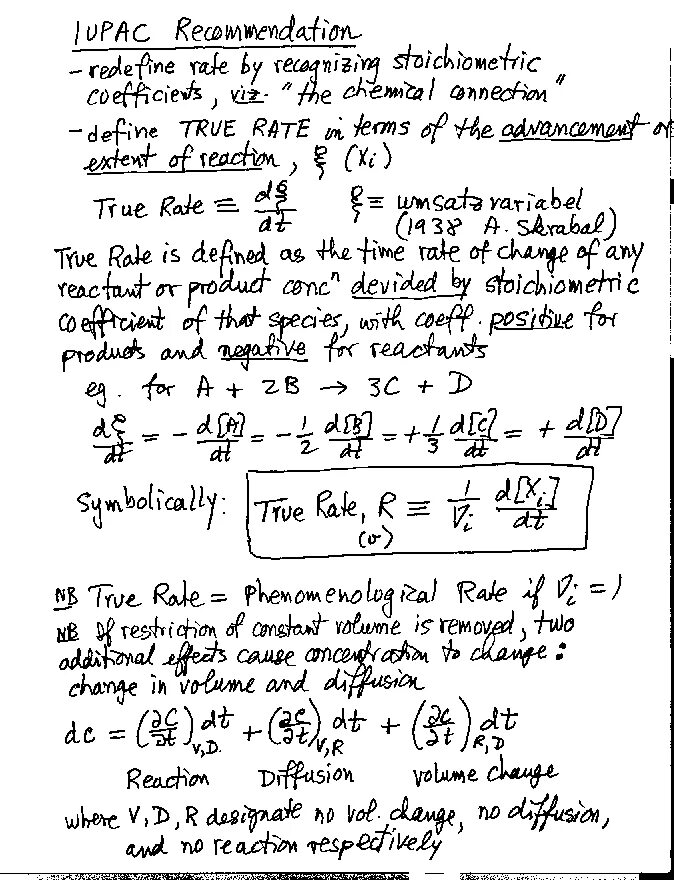 IUPAC Recommendation
- redefine rate by recognizing stoichiometric
coefficients, viz. "the chemical connection"
- define TRUE RATE in terms of the advancement or
extent of reaction, ξ (Xi)
True Rate ≡ dξ/dt   ξ ≡ umsatzvariabel
(1938 A. Skrabal)
True Rate is defined as the time rate of change of any
reactant or product concⁿ devided by stoichiometric
coefficient of that species, with coeff. positive for
products and negative for reactants
eg. for A + 2B → 3C + D
dξ/dt = - d[A]/dt = - 1/2 d[B]/dt = + 1/3 d[C]/dt = + d[D]/dt
Symbolically: True Rate, R ≡ 1/νi d[Xi]/dt
(v)
NB True Rate = Phenomenological Rate if νi = 1
NB If restriction of constant volume is removed, two
additional effects cause concentration to change:
change in volume and diffusion
dc = (∂C/∂t)V,D dt + (∂c/∂t)V,R dt + (∂c/∂t)R,D dt
Reaction Diffusion volume change
where V, D, R designate no vol. change, no diffusion,
and no reaction respectively